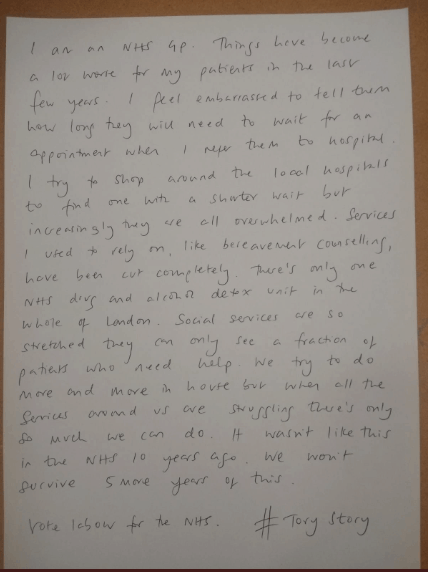 I am an NHS GP. Things have become
a lot worse for my patients in the last
few years. I feel embarrassed to tell them
how long they will need to wait for an
appointment when I refer them to hospital.
I try to shop around the local hospitals
to find one with a shorter wait but
increasingly they are all overwhelmed. Services
I used to rely on, like bereavement counselling,
have been cut completely. There's only one
NHS drug and alcohol detox unit in the
whole of London. Social services are so
stretched they can only see a fraction of
patients who need help. We try to do
more and more in house but when all the
services around us are struggling there's only
so much we can do. It wasn't like this
in the NHS 10 years ago. We won't
survive 5 more years of this.
Vote labour for the NHS. # Tory Story